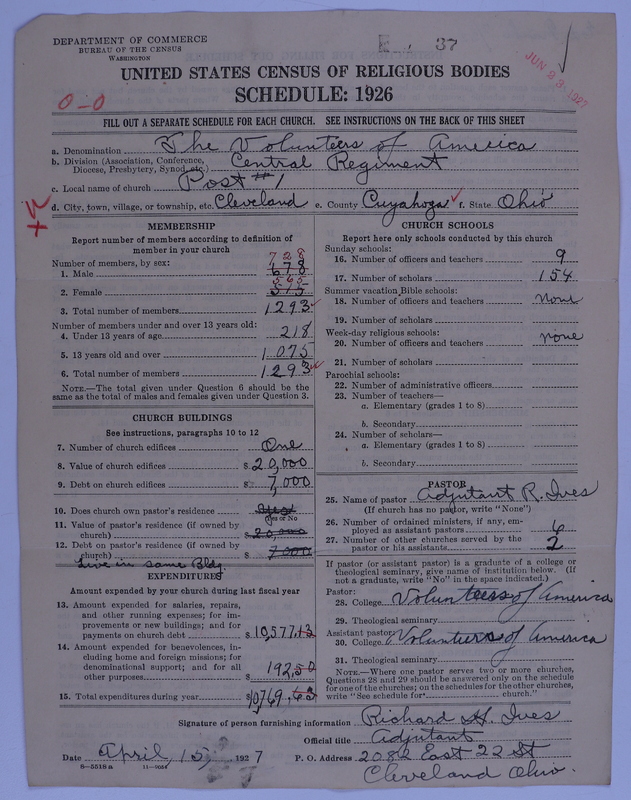 DEPARTMENT OF COMMERCE
BUREAU OF THE CENSUS
WASHINGTON
37
JUN 23 1927
UNITED STATES CENSUS OF RELIGIOUS BODIES
SCHEDULE: 1926
0-0
FILL OUT A SEPARATE SCHEDULE FOR EACH CHURCH. SEE INSTRUCTIONS ON THE BACK OF THIS SHEET
a. Denomination The Volunteers of America
b. Division (Association, Conference, Diocese, Presbytery, Synod, etc.) Central Regiment
c. Local name of church Post #1
d. City, town, village, or township, etc. Cleveland e. County Cuyahoga f. State Ohio
MEMBERSHIP
Report number of members according to definition of
member in your church
Number of members, by sex:
728
1. Male 678
565
2. Female
3. Total number of members 1293
Number of members under and over 13 years old:
4. Under 13 years of age 218
5. 13 years old and over 1075
6. Total number of members 1293
NOTE.—The total given under Question 6 should be the
same as the total of males and females given under Question 3.
CHURCH BUILDINGS
See instructions, paragraphs 10 to 12
7. Number of church edifices One
8. Value of church edifices $20,000
9. Debt on church edifices $7,000
10. Does church own pastor's residence
Yes or No
11. Value of pastor's residence (if owned by
church) $20,000
12. Debt on pastor's residence (if owned by
church) $7,000
Live in same Bldg.
EXPENDITURES
Amount expended by your church during last fiscal year
13. Amount expended for salaries, repairs,
and other running expenses; for im-
provements or new buildings; and for
payments on church debt $10,577.13
14. Amount expended for benevolences, in-
cluding home and foreign missions; for
denominational support; and for all
other purposes $192.50
15. Total expenditures during year $10,769.63
CHURCH SCHOOLS
Report here only schools conducted by this church
Sunday schools:
16. Number of officers and teachers 9
17. Number of scholars 154
Summer vacation Bible schools:
18. Number of officers and teachers none
19. Number of scholars
Week-day religious schools:
20. Number of officers and teachers none
21. Number of scholars
Parochial schools:
22. Number of administrative officers
23. Number of teachers—
a. Elementary (grades 1 to 8)
b. Secondary
24. Number of scholars—
a. Elementary (grades 1 to 8)
b. Secondary
PASTOR
25. Name of pastor Adjutant R. Ives
(If church has no pastor, write "None")
26. Number of ordained ministers, if any, em-
ployed as assistant pastors 6
27. Number of other churches served by the
pastor or his assistants 2
If pastor (or assistant pastor) is a graduate of a college or
theological seminary, give name of institution below. (If
not a graduate, write "No" in the space indicated.)
Pastor:
28. College Volunteers of America
29. Theological seminary
Assistant pastor:
30. College Volunteers of America
31. Theological seminary
NOTE.—Where one pastor serves two or more churches,
Questions 28 and 29 should be answered only on the schedule
for one of the churches; on the schedules for the other churches,
write "See schedule for church."
Signature of person furnishing information Richard H. Ives
Official title Adjutant
Date April 15, 1927 P. O. Address 2082 East 22 St
8-5518a 11-9084 Cleveland Ohio.